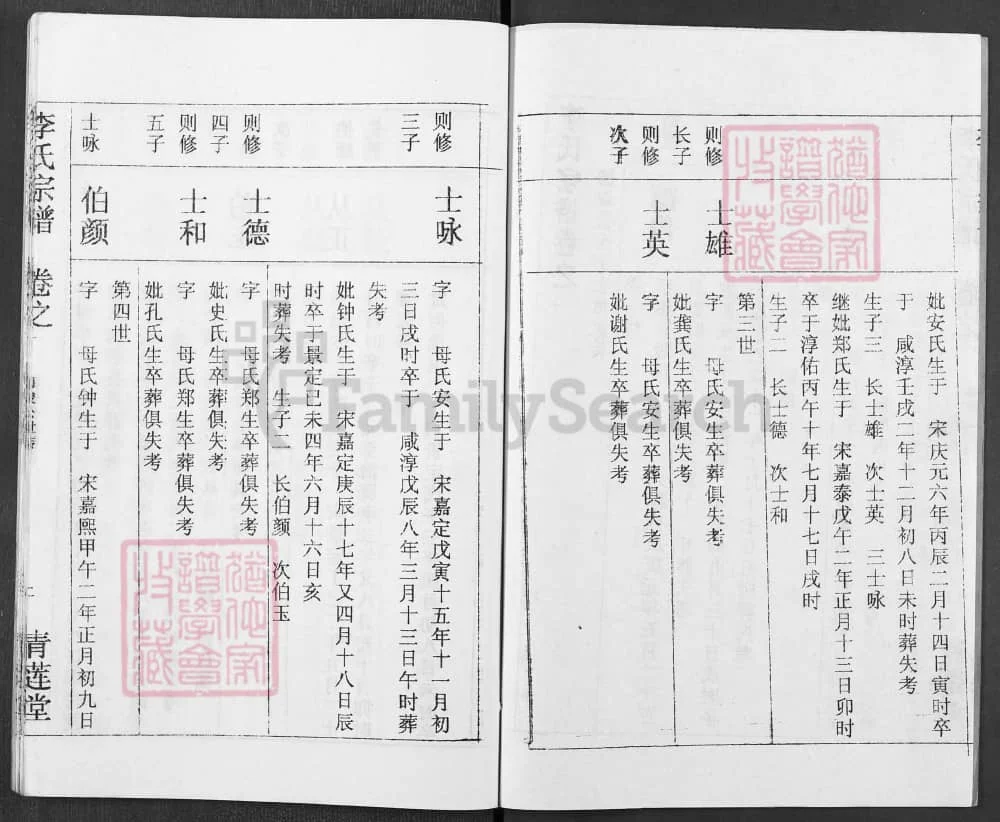 妣安氏生于 宋庆元六年丙辰二月十四日寅时卒
于 咸淳壬戌二年十二月初八日未时葬失考
生子三 长士雄 次士英 三士咏
继妣郑氏生于 宋嘉泰戊午二年正月十三日卯时
卒于淳佑丙午十年七月十七日戌时
生子二 长士德 次士和
第三世
则修长子
士雄
字 母氏安生卒葬俱失考
妣龚氏生卒葬俱失考
则修次子
士英
字 母氏安生卒葬俱失考
妣谢氏生卒葬俱失考
则修三子
士咏
字 母氏安生于 宋嘉定戊寅十五年十一月初
三日戌时卒于 咸淳戊辰八年三月十三日午时葬
失考
妣钟氏生于 宋嘉定庚辰十七年又四月十八日辰
时卒于景定己未四年六月十六日亥
时葬失考 生子二 长伯颜 次伯玉
则修四子
士德
字 母氏郑生卒葬俱失考
妣史氏生卒葬俱失考
则修五子
士和
字 母氏郑生卒葬俱失考
妣孔氏生卒葬俱失考
第四世
士咏
伯颜
字 母氏钟生于 宋嘉熙甲午二年正月初九日
李氏宗谱 卷之
青莲堂
猶他家譜學會收藏
猶他家譜學會收藏
FamilySearch